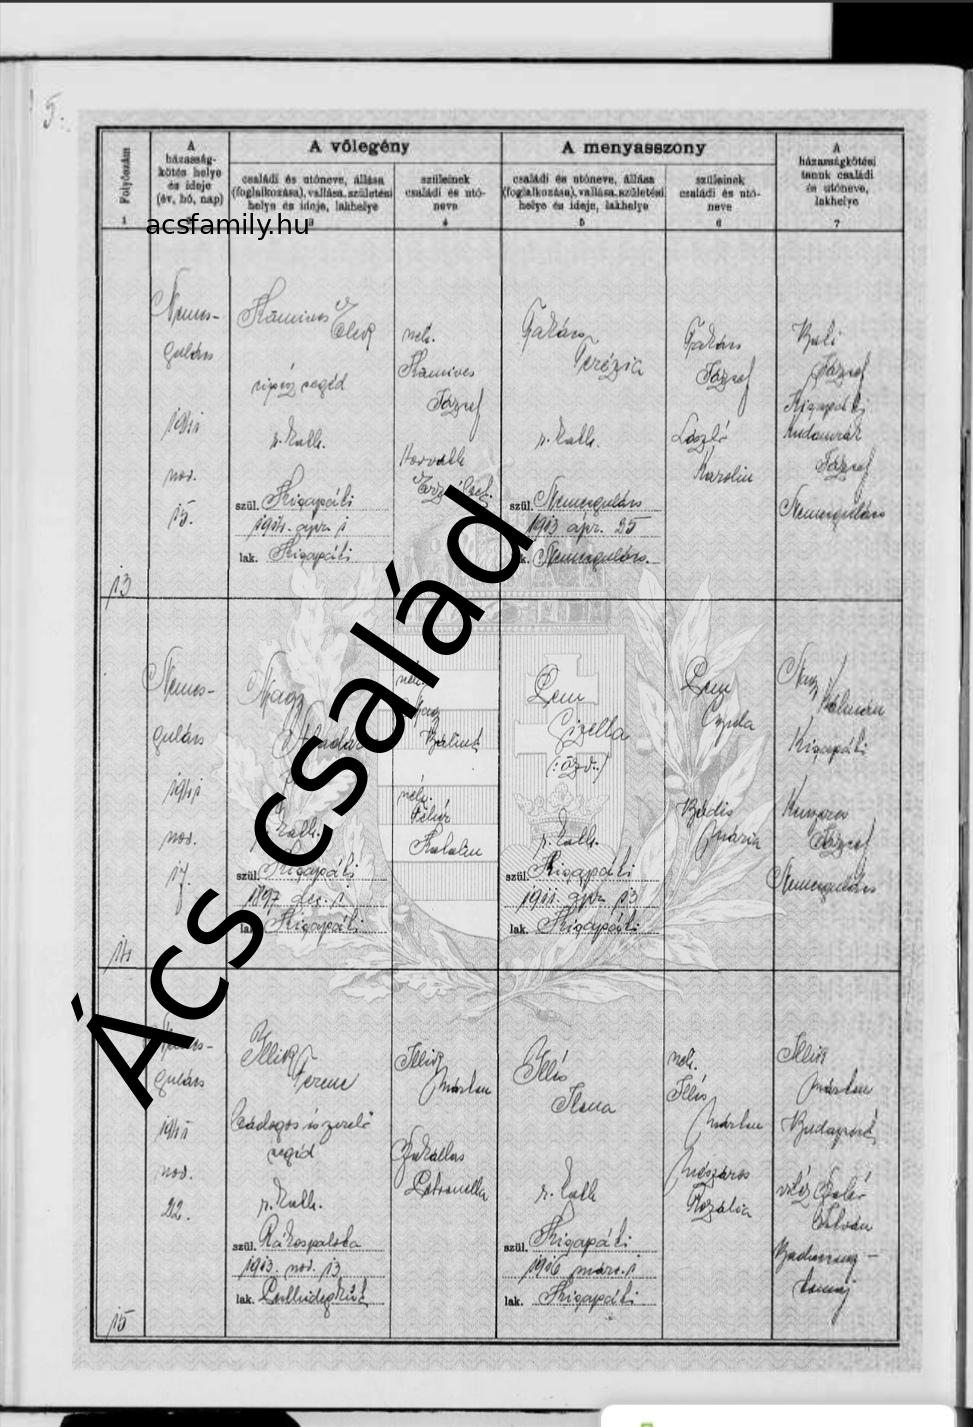 5.
Folyószám
1
A
házasság-
kötés helye
és ideje
(év, hó, nap)
2
A vőlegény
családi és utóneve, állása
(foglalkozása), vallása, születési
helye és ideje, lakhelye
3
szüleinek
családi és utó-
neve
4
A menyasszony
családi és utóneve, állása
(foglalkozása), vallása, születési
helye és ideje, lakhelye
5
szüleinek
családi és utó-
neve
6
A
házasságkötési
tanuk családi
és utóneve,
lakhelye
7
acsfamily.hu
13
Nemes-
gulács
1941
nov.
15.
Kámives
Elek
segéd
r. kath.
szül. Kisapáti
1911. ápr. 1
lak. Kisapáti
neh.
Kámives
József
Horváth
Erzsébet
Takács
Terézia
r. kath.
szül. Nemesgulács
1913 ápr. 25
lak. Nemesgulács.
Takács
József
László
Karolin
József
Kisapáti
József
Nemesgulács
14
Nemes-
gulács
1941
nov.
17.
Nagy
r. kath.
szül. Kisapáti
1897 dec. 1
lak. Kisapáti
neh.
Nagy
Bálint
neh.
Fehér
Katalin
Gizella
(: özv. :)
r. kath.
szül. Kisapáti
1911. ápr. 13
lak. Kisapáti
Gyula
Mária
Nagy
Kálmán
Kisapáti
József
Nemesgulács
15
Nemes-
gulács
1941
nov.
22.
Ferenc
bádogos és szerelő
segéd
r. kath.
szül. Rákospalota
1913. nov. 13
lak. Pesthidegkút
Márton
Petronella
Illés
Ilona
r. kath
szül. Kisapáti
1916 márc. 1
lak. Kisapáti
neh.
Illés
Márton
Mészáros
Rozália
Márton
Budapest
vitéz
István
Badacsony-
tomaj
Ács család